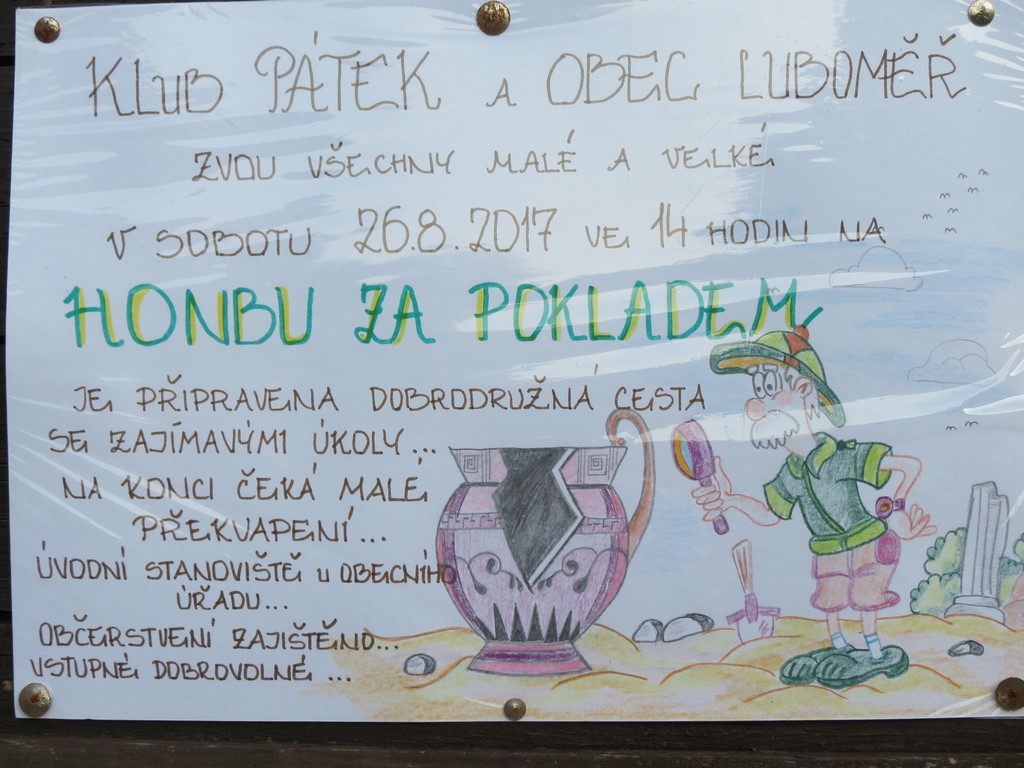 KLUB PÁTEK A OBEC LUBOMĚŘ
ZVOU VŠECHNY MALÉ A VELKÉ
V SOBOTU 26.8.2017 VE 14 HODIN NA
HONBU ZA POKLADEM
JE PŘIPRAVENA DOBRODRUŽNÁ CESTA
SE ZAJÍMAVÝMI ÚKOLY...
NA KONCI ČEKÁ MALÉ
PŘEKVAPENÍ...
ÚVODNÍ STANOVIŠTĚ U OBECNÍHO
ÚŘADU...
OBČERSTVENÍ ZAJIŠTĚNO...
VSTUPNÉ DOBROVOLNÉ...